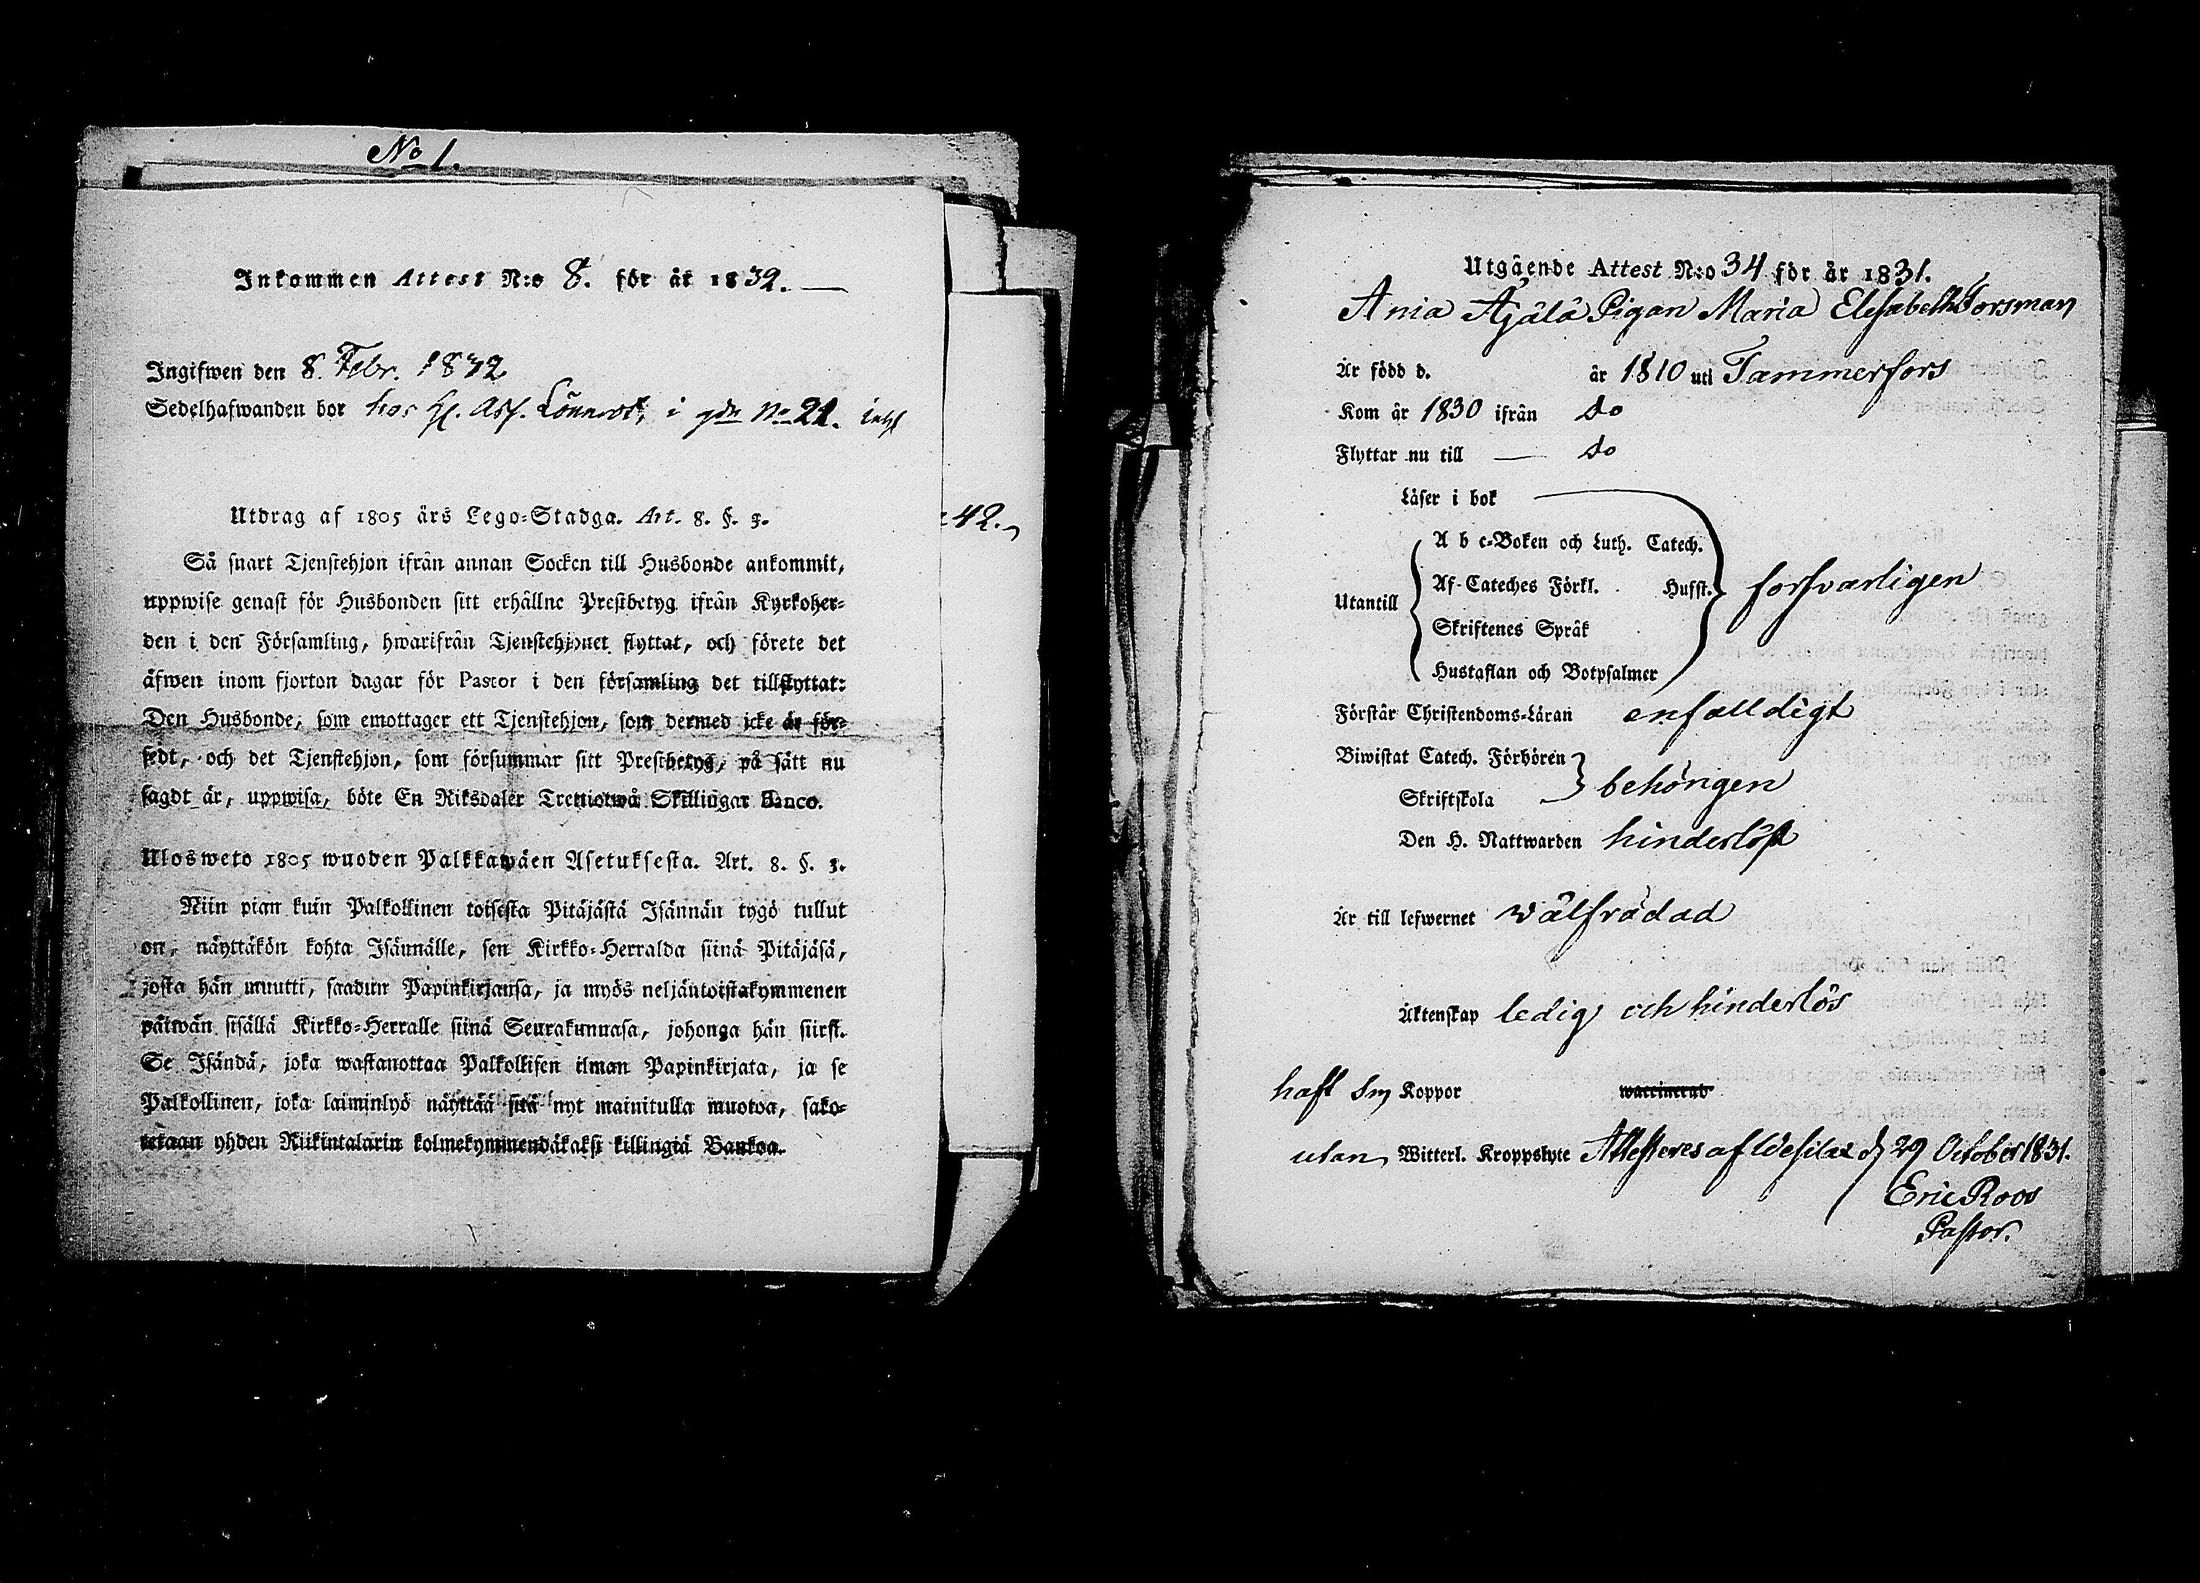 No 1.
Inkommen Attest N:o 8. för år 1832.
Ingifwen den 8. Febr. 1832
Sedelhafwanden bor hos H. Ass. Lönnrot, i gdn No 21.
Utdrag af 1805 års Lego-Stadga. Art. 8. §. 3.
Så snart Tjenstehjon ifrån annan Socken till Husbonde ankommit,
uppwise genast för Husbonden sitt erhållne Prestbetyg ifrån Kyrkoher-
den i den Församling, hwarifrån Tjenstehjonet flyttat, och förete det
äfwen inom fjorton dagar för Pastor i den församling det tillflyttat:
Den Husbonde, som emottager ett Tjenstehjon, som dermed icke är för-
sedt, och det Tjenstehjon, som försummar sitt Prestbetyg, på sätt nu
sagdt är, uppwisa, böte En Riksdaler Trettiotwå Skillingar Banco.
Ulosweto 1805 wuoden Palkkawäen Asetuksesta. Art. 8. §. 3.
Niin pian kuin Palkollinen toisesta Pitäjästä Isännän tygö tullut
on, näyttäkön kohta Isännälle, sen Kirkko-Herralda siinä Pitäjäsä,
josta hän muutti, saadun Papinkirjansa, ja myös neljäntoistakymmenen
päiwän sisällä Kirkko-Herralle siinä Seurakunnasa, johonga hän siirsi.
Se Isändä, joka wastanottaa Palkollisen ilman Papinkirjata, ja se
Palkollinen, joka laiminlyö näyttää sitä nyt mainitulla muotoa, sako-
tetaan yhden Riikintalarin kolmekymmendäkaksi killingiä Bankoa.
42.
Utgående Attest N:o 34 för år 1831.
Ania Äjälä Pigan Maria Elisabeth Forsman
Är född d. år 1810 uti Tammerfors
Kom år 1830 ifrån do
Flyttar nu till — do
Läser i bok
A b c-Boken och Luth. Catech.
Utantill Af-Cateches Förkl. Husst. forsvarligen
Skriftenes Språk
Hustaflan och Botpsalmer
Förstår Christendoms-Läran enfalldigt
Biwistat Catech. Förhören
Skriftskola behörigen
Den H. Nattwarden hinderlöst
Är till lefwernet wälfrädad
Äktenskap ledig och hinderlös
haft Sm Koppor waccinerad
utan Witterl. Kroppslyte Attesteres af Wesilax d 29 October 1831.
Eric Roos
Pastor.